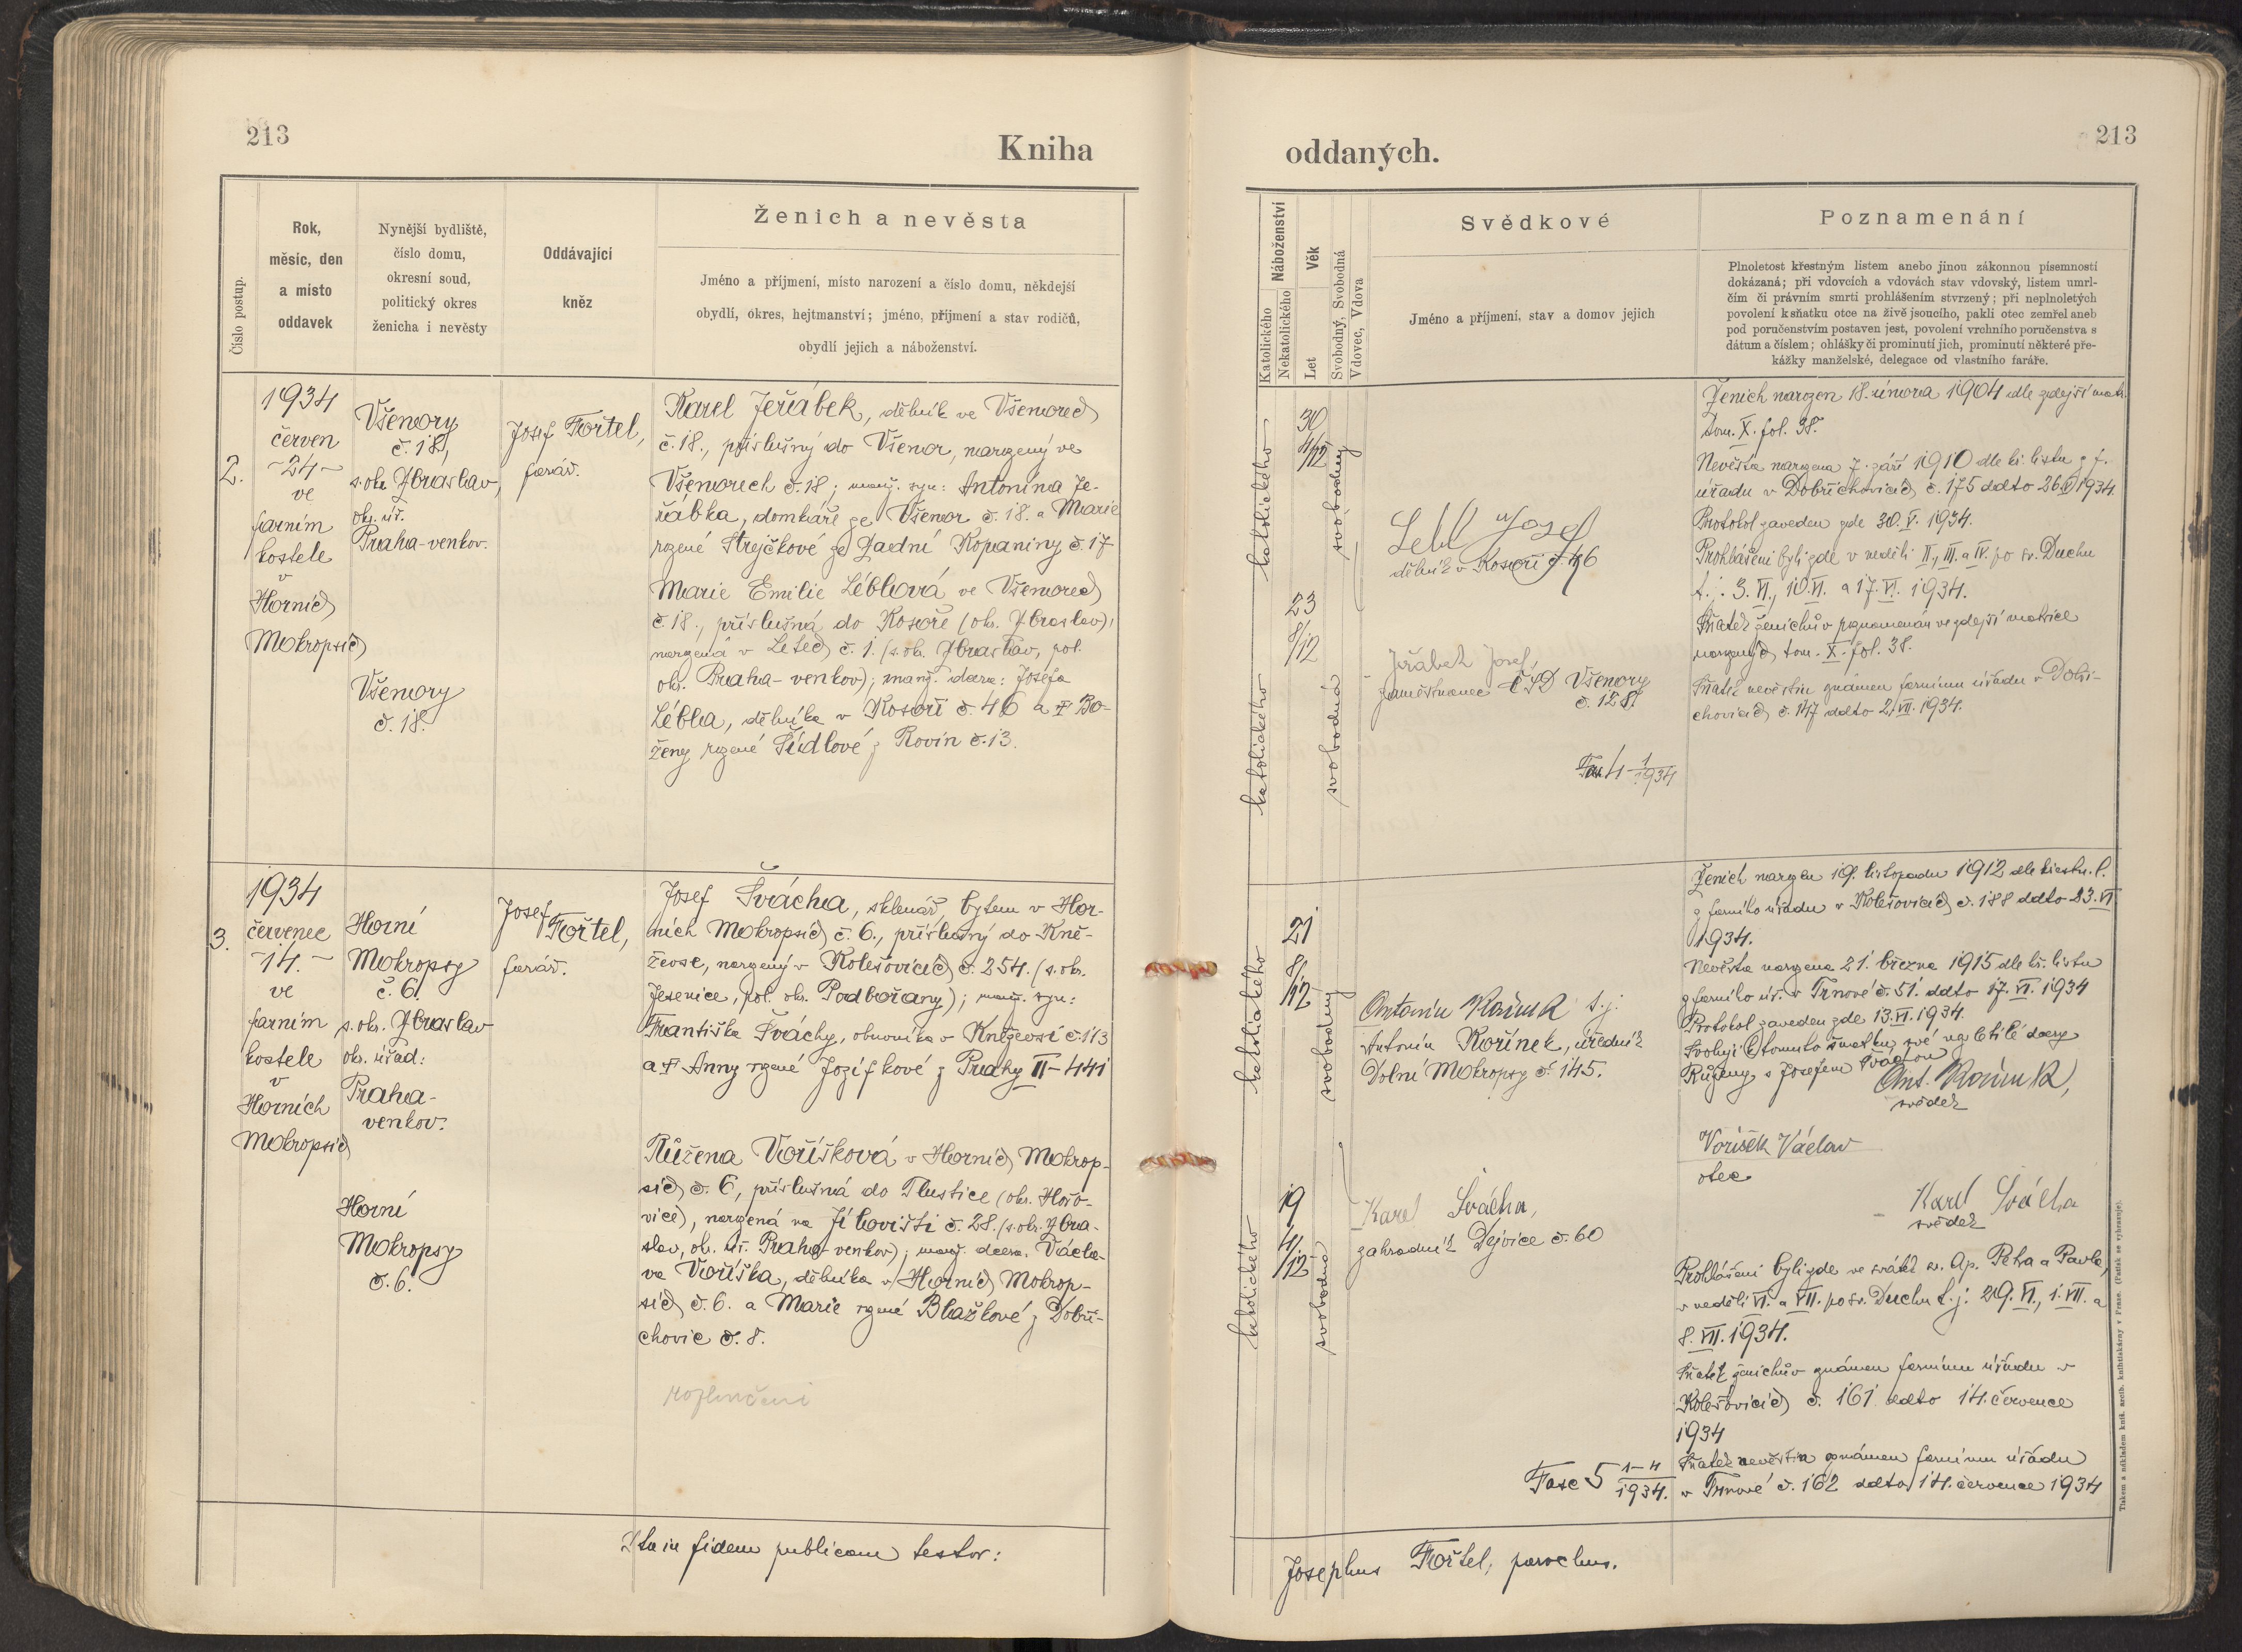 213
Kniha
Číslo postup.
Rok,
měsíc, den
a místo
oddavek
Nynější bydliště,
číslo domu,
okresní soud,
politický okres
ženicha i nevěsty
Oddávající
kněz
Ženich a nevěsta
Jméno a příjmení, místo narození a číslo domu, někdejší
obydlí, okres, hejtmanství; jméno, příjmení a stav rodičů,
obydlí jejich a náboženství.
2.
1934
červen
-24-
ve
farním
kostele
v
Horních
Mokropsích
Všenory
č. 18,
s. okr. Zbraslav,
okr. úř.
Praha-venkov.
Všenory
č. 18.
Josef Fořtel,
farář.
Karel Jeřábek, dělník ve Všenorech
č. 18., příslušný do Všenor, narozený ve
Všenorech č. 18; manž. syn: Antonína Je-
řábka, domkáře ze Všenor č. 18. a Marie
rozené Strejčkové ze Zadní Kopaniny č. 17
Marie Emilie Léblová ve Všenorech
č. 18., příslušná do Kosoře (okr. Zbraslav),
narozená v Letech č. 1. (s. okr. Zbraslav, pol.
okr. Praha-venkov); manž. dcera: Josefa
Lébla, dělníka v Kosoři č. 46 a † Bo-
ženy rozené Šídlové z Rovin č. 13.
3.
1934
červenec
-14.-
ve
farním
kostele
v
Horních
Mokropsích
Horní
Mokropsy
č. 6.
s. okr. Zbraslav
okr. úřad:
Praha-
venkov.
Horní
Mokropsy
č. 6.
Josef
Fořtel,
farář.
Josef Švácha, sklenář, bytem v Hor-
ních Mokropsích č. 6., příslušný do Kně-
ževse, narozený v Kolešovicích č. 254. (s. okr.
Jesenice, pol. okr. Podbořany); manž. syn:
Františka Šváchy, obuvníka v Kněževsi č. 113
a † Anny rozené Jozífkové z Prahy II-441
Růžena Voříšková v Horních Mokrop-
sích č. 6, příslušná do Tlustice (okr. Hořo-
vice), narozená na Jíloviští č. 28. (s. okr. Zbra-
slav, okr. úř. Praha-venkov); manž. dcera: Václa-
va Voříška, dělníka v Horních Mokrop-
sích č. 6. a Marie rozené Blažkové z Dobři-
chovic č. 8.
rozloučeni
Ita in fidem publicam testor:
213
oddaných.
Náboženství
Katolického
Nekatolického
Věk
Let
Svobodný, Svobodná
Vdovec, Vdova
Svědkové
Jméno a příjmení, stav a domov jejich
Poznamenání
Plnoletost křestným listem anebo jinou zákonnou písemností
dokázaná; při vdovcích a vdovách stav vdovský, listem umrl-
čím či právním smrti prohlášením stvrzený; při neplnoletých
povolení k sňatku otce na živě jsoucího, pakli otec zemřel aneb
pod poručenstvím postaven jest, povolení vrchního poručenstva s
dátum a číslem; ohlášky či prominutí jich, prominutí některé pře-
kážky manželské, delegace od vlastního faráře.
katolického
30
4/12
svobodný
Lebl Josef
dělník v Kosoři č. 46
katolického
23
8/12
svobodná
Jeřábek Josef,
zaměstnanec ČSD Všenory
č. 128.
Fas. 4 1/1934
Ženich narozen 18. února 1904 dle zdejší matr.
tom. X. fol. 38.
Nevěsta narozena 7. září 1910 dle kř. listu z f.
úřadu v Dobřichovicích č. 175 ddto 26. V. 1934.
Protokol zaveden zde 30. V. 1934.
Prohlášeni byli zde v neděli II., III. a IV. po sv. Duchu
t. j. 3. VI., 10. VI. a 17. VI. 1934.
Sňatek ženichův poznamenán ve zdejší matrice
narozených tom. X. fol. 38.
Sňatek nevěstin známen farnímu úřadu v Dobři-
chovicích č. 147 ddto 2. VII. 1934.
katolického
21
8/12
svobodný
Antonín Kořínek t. j.
Antonín Kořínek, úředník
Dolní Mokropsy č. 145.
katolického
19
4/12
svobodná
Karel Švácha,
zahradník Dejvice č. 60
Fasc 5 1-4/1934.
Ženich narozen 19. listopadu 1912 dle křestn. l.
z farního úřadu v Kolešovicích č. 188 ddto 23. VI.
1934.
Nevěsta narozena 21. března 1915 dle kř. listu
z farního úř. v Trnové č. 51. ddto 17. VI. 1934
Protokol zaveden zde 13. VI. 1934.
Svoluji k tomuto sňatku své nezletilé dcery
Růženy s Josefem Šváchou
Ant. Kořínek,
svědek
Voříšek Václav
otec
Karel Švácha
svědek
Prohlášeni byli zde ve svátek sv. Ap. Petra a Pavla,
v neděli VI. a VII. po sv. Duchu t. j. 29. VI., 1. VII. a
8. VII. 1934.
Sňatek ženichův známen farnímu úřadu v
Kolešovicích č. 161 ddto 14. července
1934
Sňatek nevěstin známen farnímu úřadu
v Trnové č. 162 ddto 14. července 1934
Josephus Fořtel, parochus.